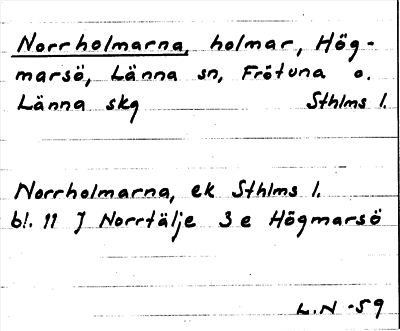 Norrholmarna, holmar, Hög-
marsö, Länna sn, Frötuna o.
Länna skg Sthlms l.
Norrholmarna, ek Sthlms l.
bl. 11 J Norrtälje 3 e Högmarsö
L.N -59